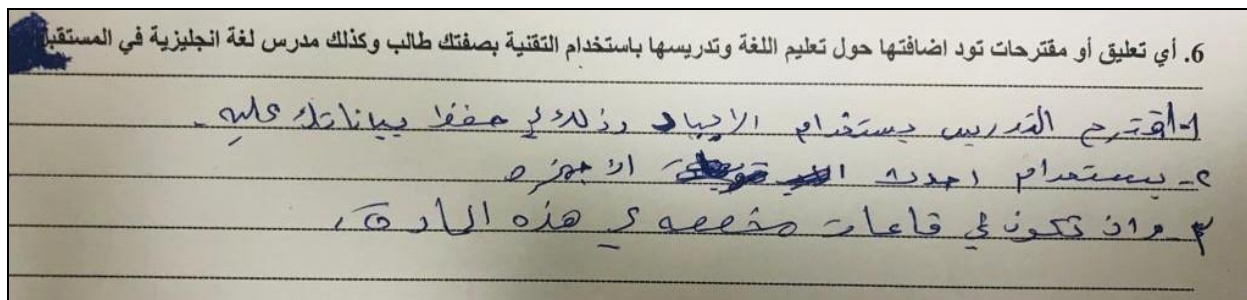 6. أي تعليق أو مقترحات تود اضافتها حول تعليم اللغة وتدريسها باستخدام التقنية بصفتك طالب وكذلك مدرس لغة انجليزية في المستقبل
1- اقترح التدريس بستخدام الايباد وذلك لي حفظ بياناتك عليه.
٢- بستخدام احدث الاجهزه
٣- وان تكون في قاعات مخصصه لي هذه المادة،